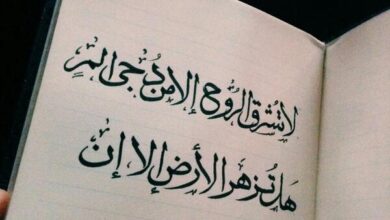 لا تُشرق الروح إلا من دُجى ألمٍ
هَل تُزهر الأرض إلا إن